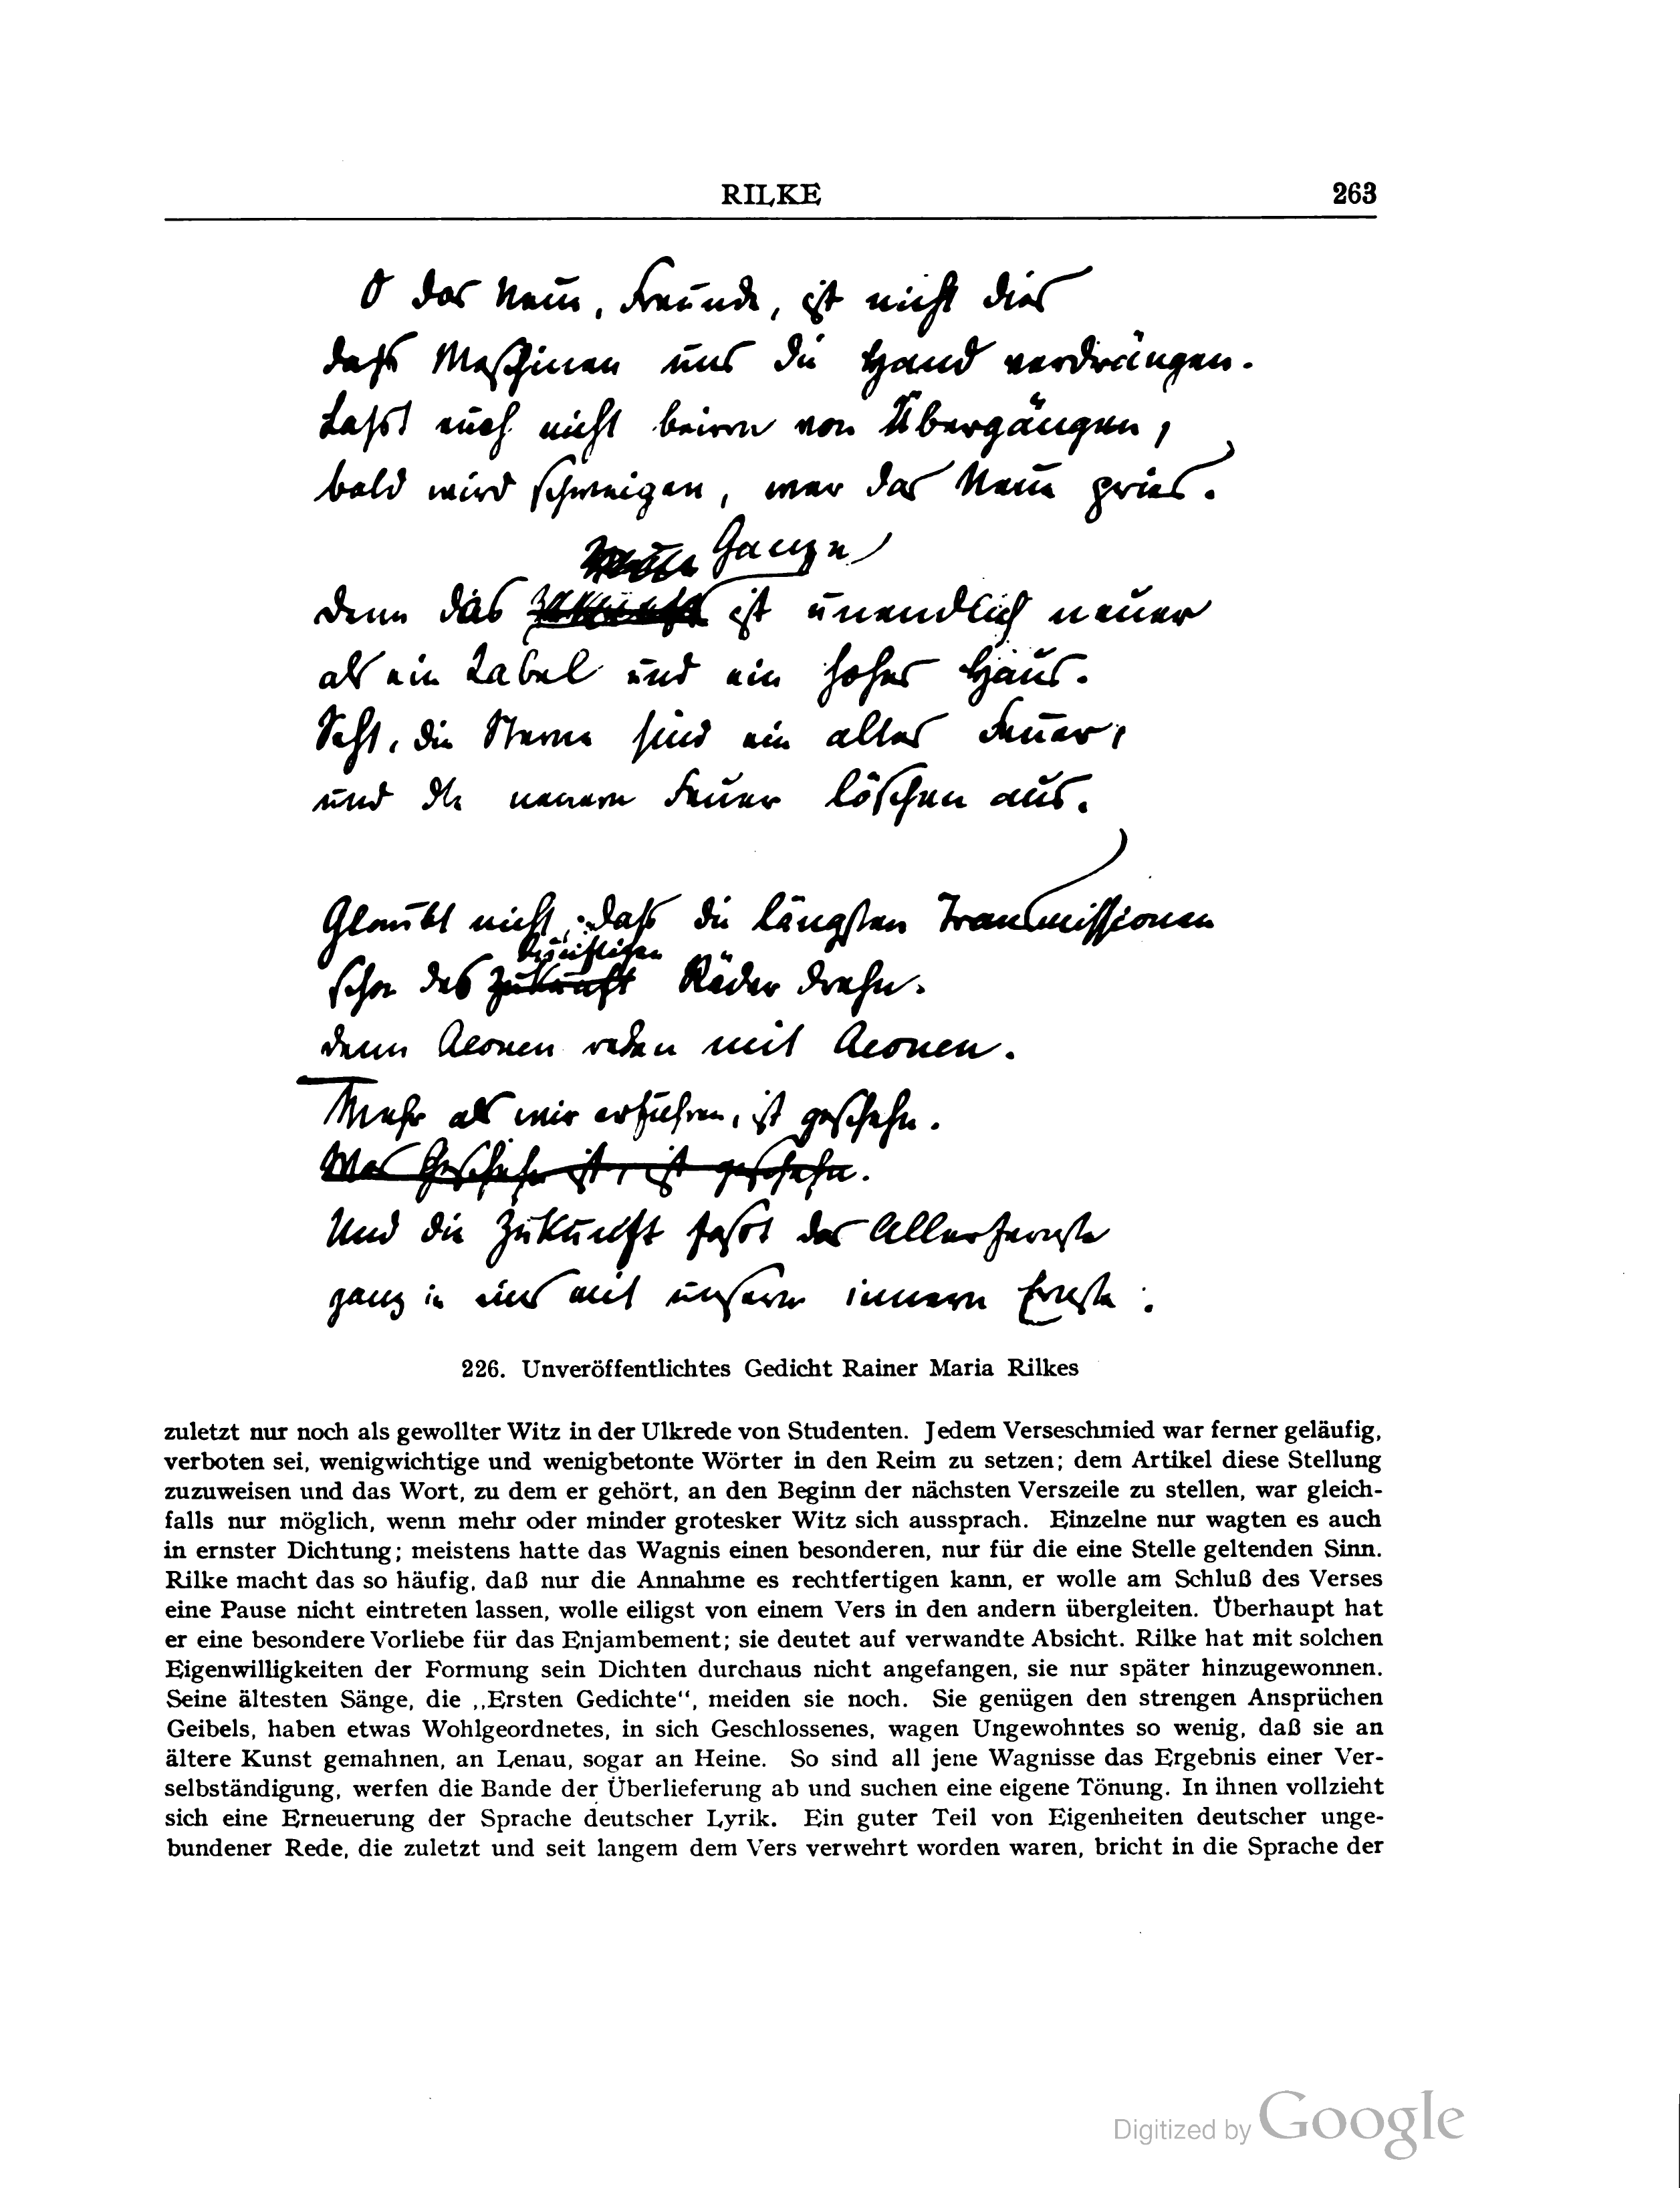 RILKE 263
O das Neue, Freunde, ist nicht dies
dass Maschinen uns die Hand verdrängen.
Lasst euch nicht beirrn von Übergängen,
bald wird schweigen, wer das Neue pries.
Ganze
Denn das ist unendlich neuer
als ein Kabel und ein hohes Haus.
Seht, die Sterne sind ein altes Feuer,
und die neuern Feuer löschen aus.
Glaubt nicht, dass die längsten Transmissionen
Künftigen
schon des Zukunft Räder drehn.
denn Aeonen reden mit Aeonen.
Mehr als wir erfuhren, ist geschehn.
Was ist, ist geschehn.
Und die Zukunft fasst das Allerfernste
ganz in eins mit unserm innern Ernste.
226. Unveröffentlichtes Gedicht Rainer Maria Rilkes
zuletzt nur noch als gewollter Witz in der Ulkrede von Studenten. Jedem Verseschmied war ferner geläufig,
verboten sei, wenigwichtige und wenigbetonte Wörter in den Reim zu setzen; dem Artikel diese Stellung
zuzuweisen und das Wort, zu dem er gehört, an den Beginn der nächsten Verszeile zu stellen, war gleich-
falls nur möglich, wenn mehr oder minder grotesker Witz sich aussprach. Einzelne nur wagten es auch
in ernster Dichtung; meistens hatte das Wagnis einen besonderen, nur für die eine Stelle geltenden Sinn.
Rilke macht das so häufig, daß nur die Annahme es rechtfertigen kann, er wolle am Schluß des Verses
eine Pause nicht eintreten lassen, wolle eiligst von einem Vers in den andern übergleiten. Überhaupt hat
er eine besondere Vorliebe für das Enjambement; sie deutet auf verwandte Absicht. Rilke hat mit solchen
Eigenwilligkeiten der Formung sein Dichten durchaus nicht angefangen, sie nur später hinzugewonnen.
Seine ältesten Sänge, die „Ersten Gedichte“, meiden sie noch. Sie genügen den strengen Ansprüchen
Geibels, haben etwas Wohlgeordnetes, in sich Geschlossenes, wagen Ungewohntes so wenig, daß sie an
ältere Kunst gemahnen, an Lenau, sogar an Heine. So sind all jene Wagnisse das Ergebnis einer Ver-
selbständigung, werfen die Bande der Überlieferung ab und suchen eine eigene Tönung. In ihnen vollzieht
sich eine Erneuerung der Sprache deutscher Lyrik. Ein guter Teil von Eigenheiten deutscher unge-
bundener Rede, die zuletzt und seit langem dem Vers verwehrt worden waren, bricht in die Sprache der
Digitized by Google